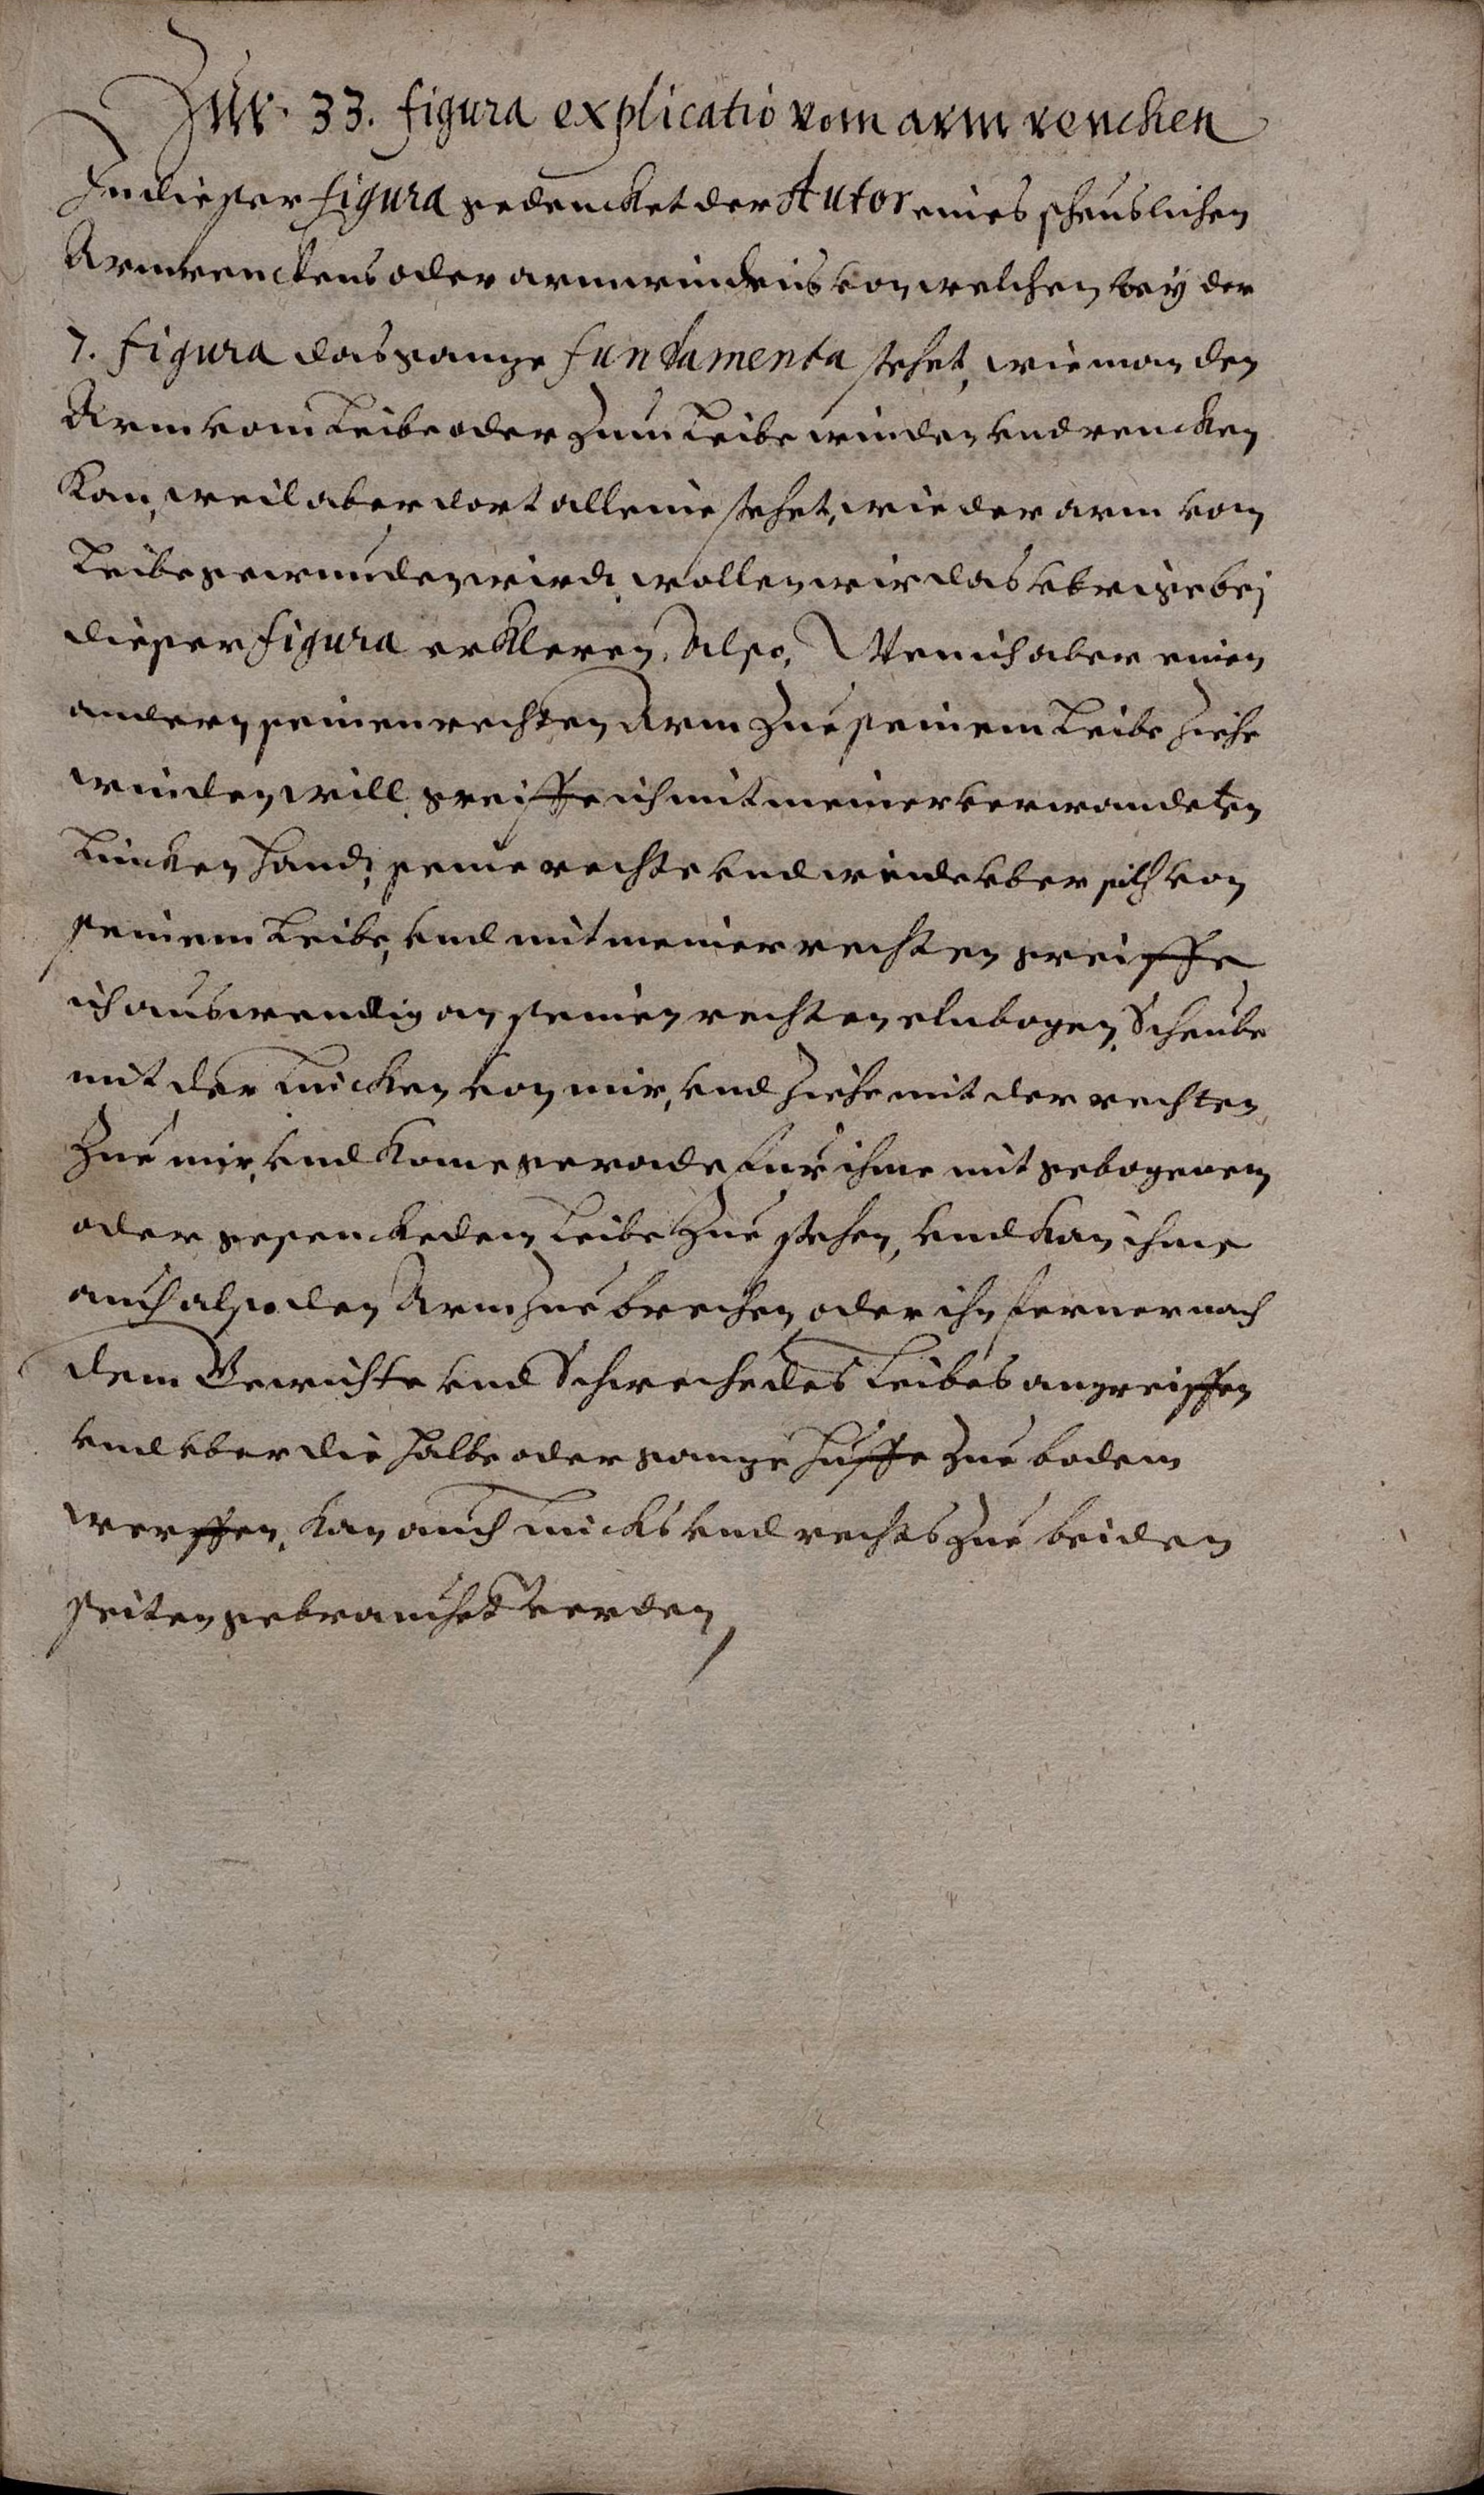 Zur 33. figura explicatio vom arm rencken
In dieser figura gedencket der Autor eines scheuslichen
Armrenckens oder armwindens von welchen bey der
7. figura das gantze fundamenta stehet, wie man den
Arm vom Leibe oder zum Leibe winden vnd rencken
kan, weil aber dort alleine stehet, wie der arm vom
Leibe gewunden wird, wollen wir das vbrige bej
dieser figura erkleren, Also, Wen ich aber einen
andern seinen rechten Arm zue seinem Leibe ziehe
winden will, greiffe ich mit meiner verwandeten
Lincken Hand, seine rechte vnd winde vber sich von
seinem Leibe, vnd mit meiner rechten greiffe
ich auswendig an seinen rechten elnbogen, Scheube
mit der Lincken von mir, vnd ziehe mit der rechten
zue mir, vnd kome gerade fur ihme mit gebogenem
oder gesenckedem Leibe zue stehen, vnd kan ihme
auch also den Arm zue brechen, oder ihn ferner nach
dem Gewichte vnd Schweche des Leibes angreiffen
vnd vber die halbe oder gantze Huffe zue bodem
werffen, kan auch Lincks vnd rechts zue beiden
seiten gebrauchet werden